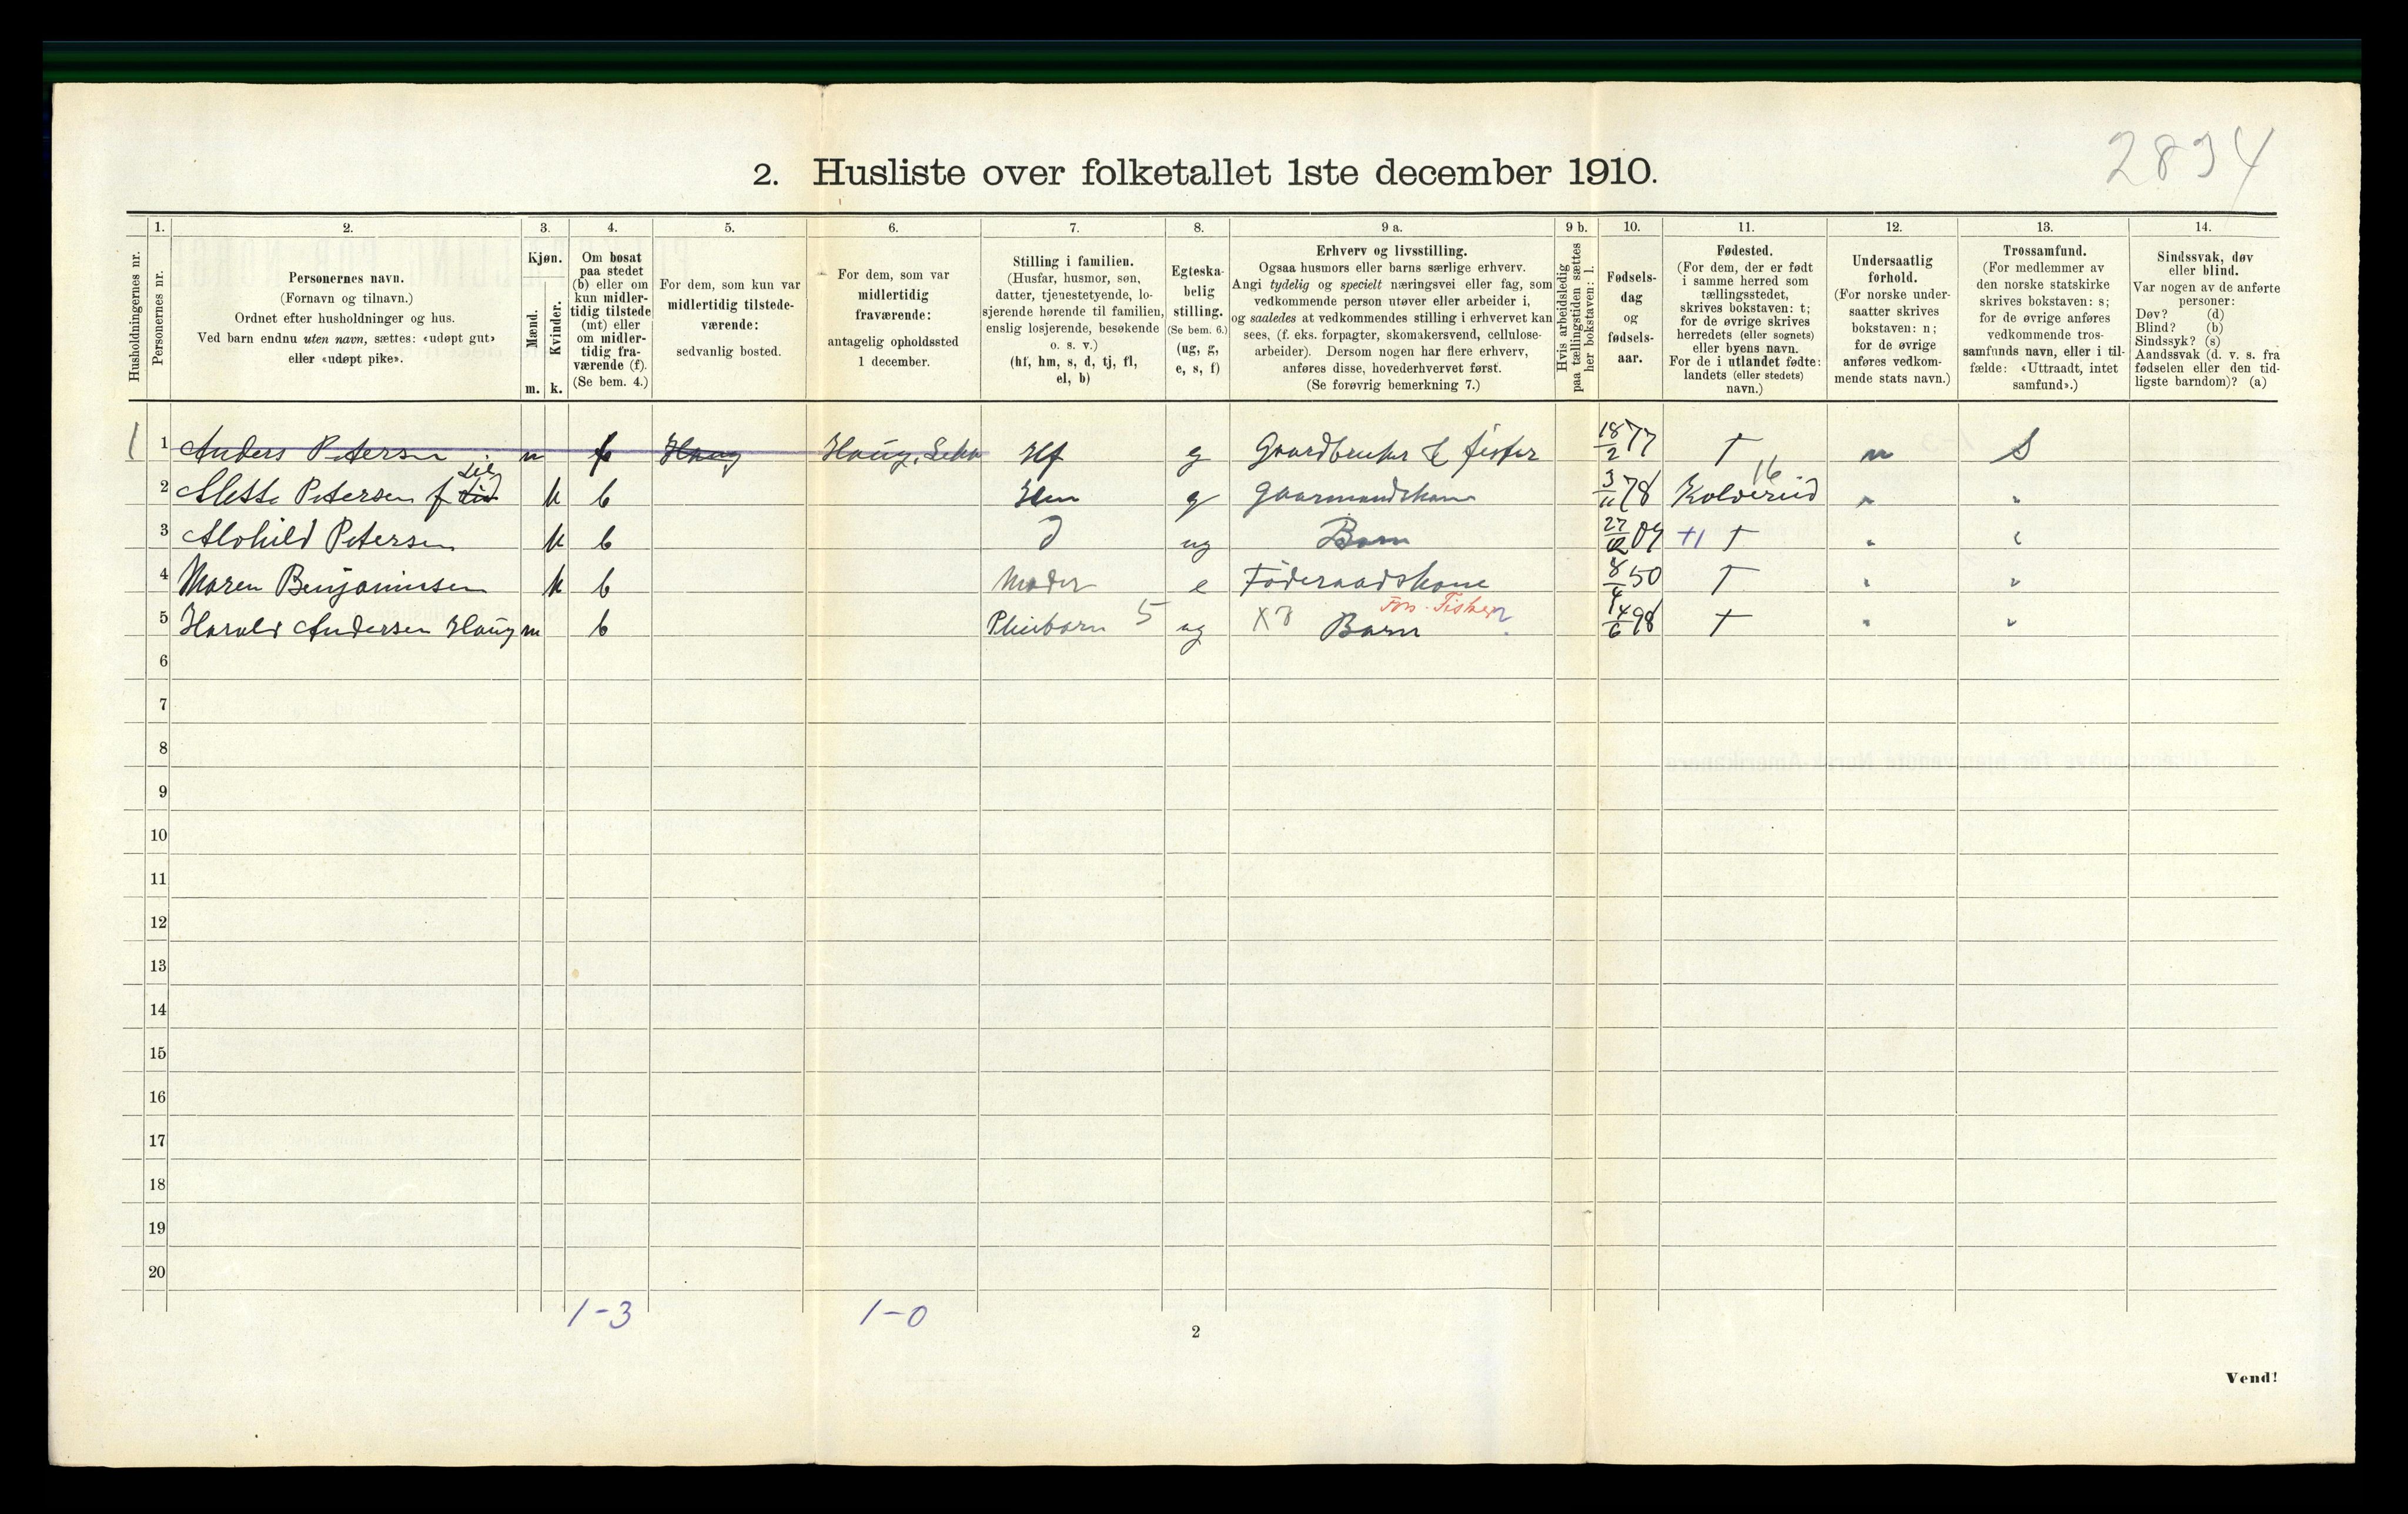 2894
2. Husliste over folketallet 1ste december 1910.
Husholdningernes nr.
1.
Personernes nr.
2.
Personernes navn.
(Fornavn og tilnavn.)
Ordnet efter husholdninger og hus.
Ved barn endnu uten navn, sættes: «udøpt gut»
eller «udøpt pike».
3.
Kjøn.
Mænd.
Kvinder.
m. k.
4.
Om bosat
paa stedet
(b) eller om
kun midler-
tidig tilstede
(mt) eller
om midler-
tidig fra-
værende (f).
(Se bem. 4.)
5.
For dem, som kun var
midlertidig tilstede-
værende:
sedvanlig bosted.
6.
For dem, som var
midlertidig
fraværende:
antagelig opholdssted
1 december.
7.
Stilling i familien.
(Husfar, husmor, søn,
datter, tjenestetyende, lo-
sjerende hørende til familien,
enslig losjerende, besøkende
o. s. v.)
(hf, hm, s, d, tj, fl,
el, b)
8.
Egteska-
belig
stilling.
(Se bem. 6.)
(ug, g,
e, s, f)
9 a.
Erhverv og livsstilling.
Ogsaa husmors eller barns særlige erhverv.
Angi tydelig og specielt næringsvei eller fag, som
vedkommende person utøver eller arbeider i,
og saaledes at vedkommendes stilling i erhvervet kan
sees, (f. eks. forpagter, skomakersvend, cellulose-
arbeider). Dersom nogen har flere erhverv,
anføres disse, hovederhvervet først.
(Se forøvrig bemerkning 7.)
9 b.
Hvis arbeidsledig
paa tællingstiden sættes
her bokstaven: l.
10.
Fødsels-
dag
og
fødsels-
aar.
11.
Fødested.
(For dem, der er født
i samme herred som
tællingsstedet,
skrives bokstaven: t;
for de øvrige skrives
herredets (eller sognets)
eller byens navn.
For de i utlandet fødte:
landets (eller stedets)
navn.)
12.
Undersaatlig
forhold.
(For norske under-
saatter skrives
bokstaven: n;
for de øvrige
anføres vedkom-
mende stats navn.)
13.
Trossamfund.
(For medlemmer av
den norske statskirke
skrives bokstaven: s;
for de øvrige anføres
vedkommende tros-
samfunds navn, eller i til-
fælde: «Uttraadt, intet
samfund».)
14.
Sindssvak, døv
eller blind.
Var nogen av de anførte
personer:
Døv? (d)
Blind? (b)
Sindssyk? (s)
Aandssvak (d. v. s. fra
fødselen eller den tid-
ligste barndom)? (a)
1 1 Anders Petersen m f Haug Haug, Hf g Gaardbruker & fisker 18/2 77 T n S
2 Mette Petersen f k b Hm g 3/11 78 Kolvereid 16 " "
3 Alvhild Petersen k b d ug Barn 27/12 09 +1 T " "
4 Maren Benjaminsen k b Moder e Føderaadskone 8/4 50 T " "
5 Harald Andersen Haug m b Pleiebarn 5 ug X8 Barn Fors. Fisker ? 14/6 98 T " "
6
7
8
9
10
11
12
13
14
15
16
17
18
19
20
1-3 1-0
2
Vend!